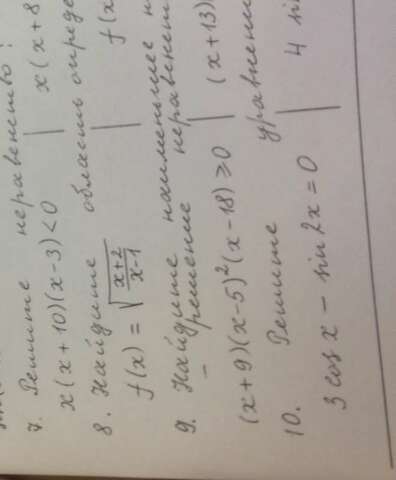 7. Решите неравенство:
x(x+10)(x-3)<0 | x(x+8
8. Найдите область опреде
f(x) = √(x+2/x-1) | f(x
9. Найдите наименьшее н
решение неравенст
(x+9)(x-5)²(x-18)≥0 | (x+13)
10. Решите уравнени
3 cos x - sin 2x = 0 | 4 si